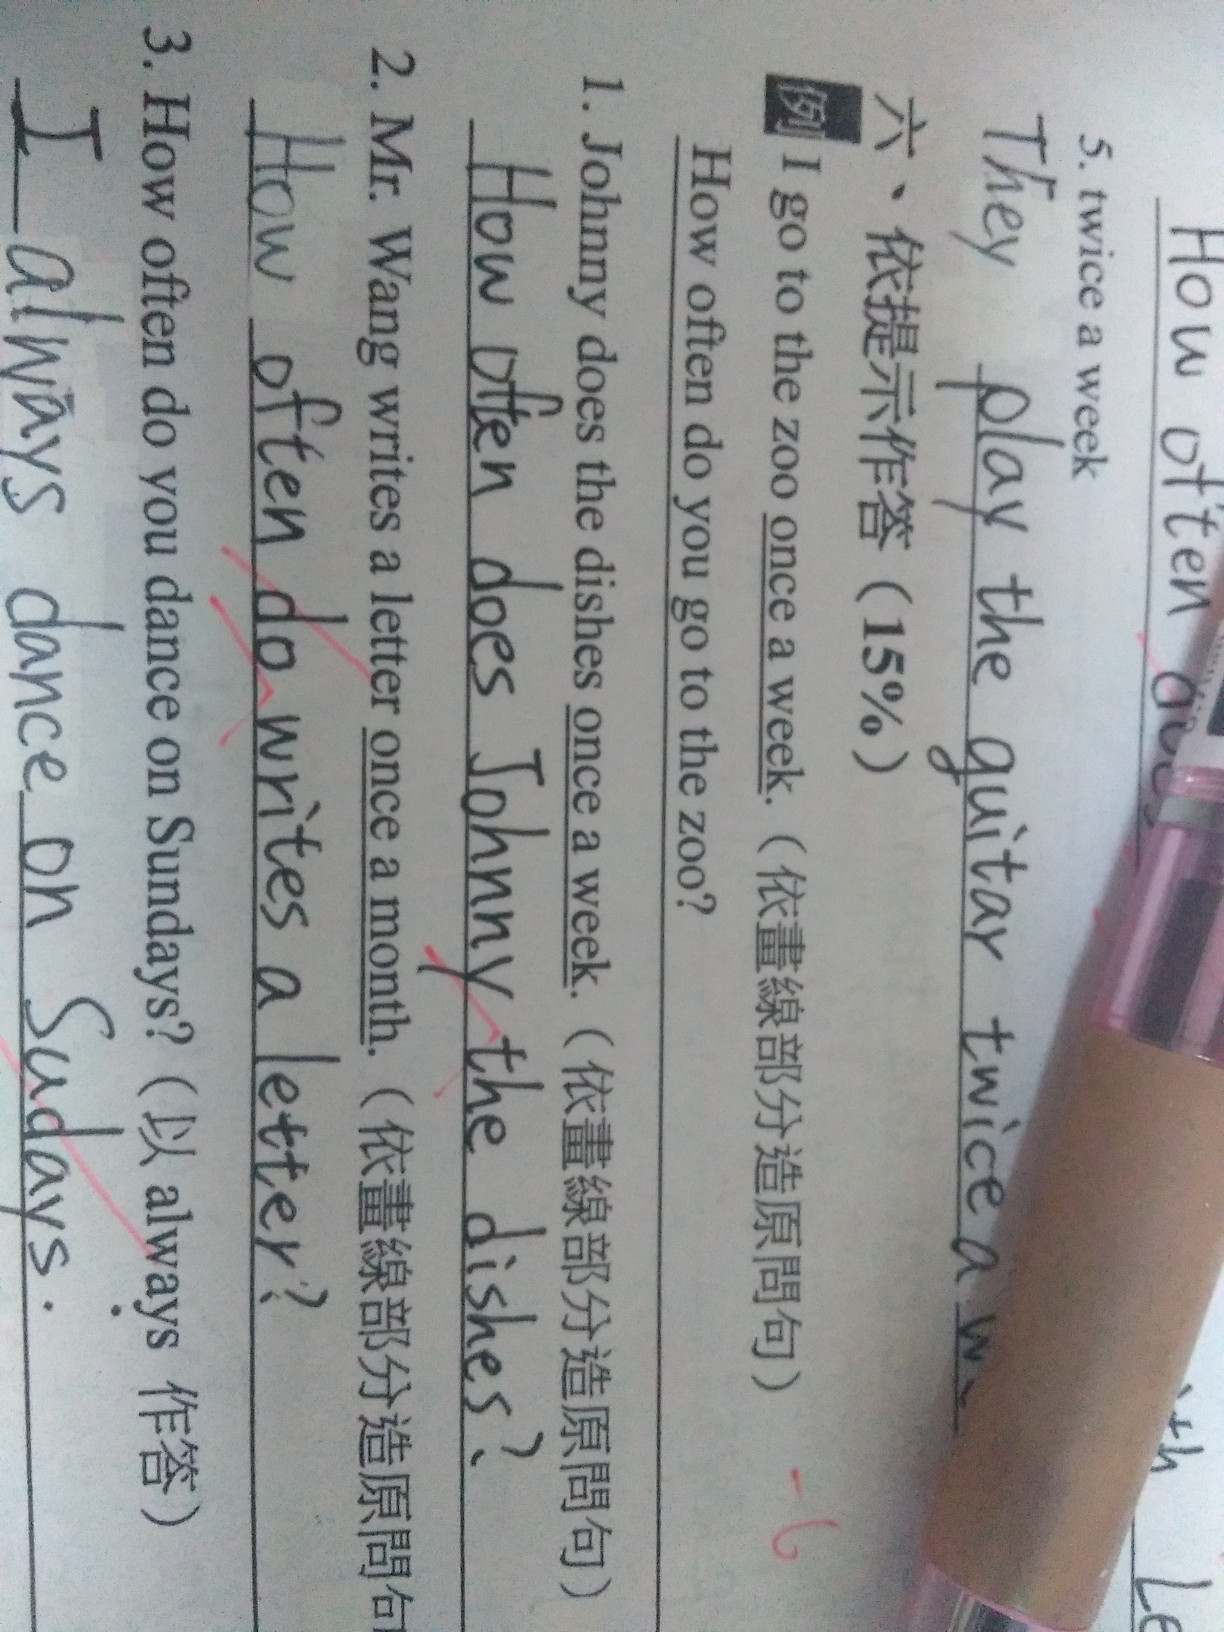 How often
5. twice a week
They play the guitar twice a
ith
Le
六、依提示作答（15%）
例 I go to the zoo once a week.（依畫線部分造原問句）
-6
How often do you go to the zoo?
1. Johnny does the dishes once a week.（依畫線部分造原問句）
How often does Johnny the dishes?
2. Mr. Wang writes a letter once a month.（依畫線部分造原問句
How often do writes a letter?
3. How often do you dance on Sundays?（以 always 作答）
I always dance on Sudays.